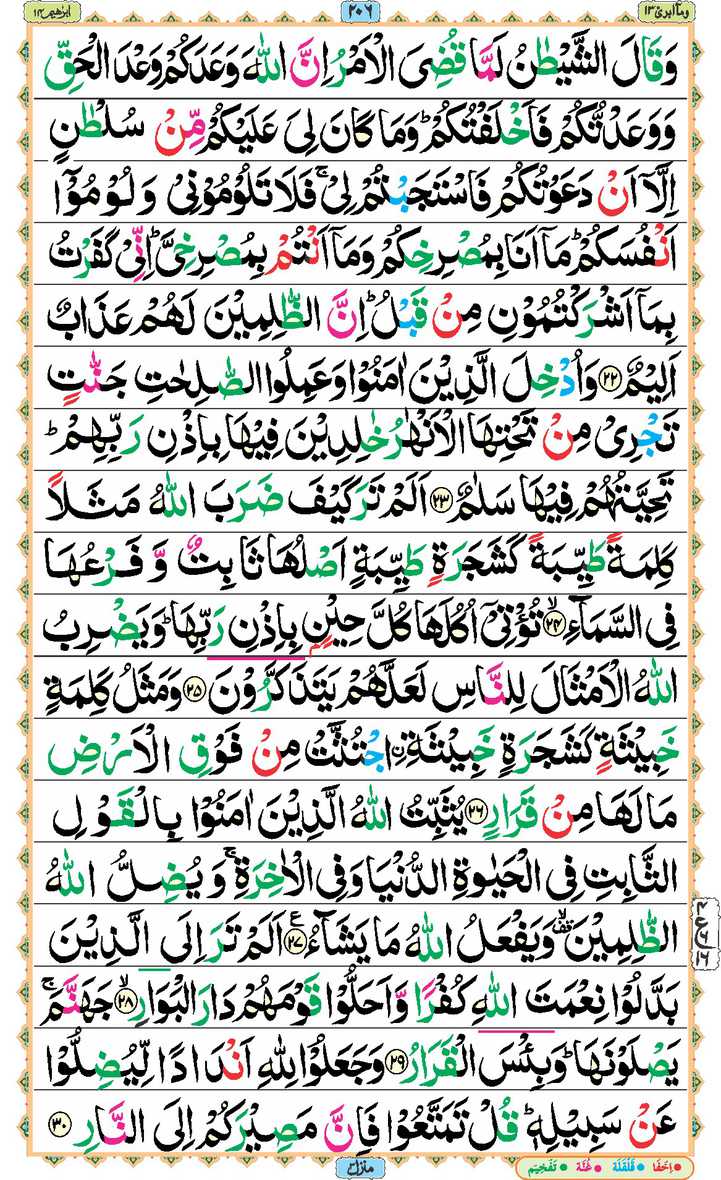 وما ابرئ ١٣
٢٠٦
ابرٰهيم ١٤
وَقَالَ الشَّيْطٰنُ لَمَّا قُضِىَ الْاَمْرُ اِنَّ اللّٰهَ وَعَدَكُمْ وَعْدَ الْحَقِّ
وَوَعَدْتُّكُمْ فَاَخْلَفْتُكُمْ ؕ وَمَا كَانَ لِىَ عَلَيْكُمْ مِّنْ سُلْطٰنٍ
اِلَّاۤ اَنْ دَعَوْتُكُمْ فَاسْتَجَبْتُمْ لِىْ ۚ فَلَا تَلُوْمُوْنِىْ وَلُوْمُوْۤا
اَنْفُسَكُمْ ؕ مَاۤ اَنَا بِمُصْرِخِكُمْ وَمَاۤ اَنْتُمْ بِمُصْرِخِىَّ ؕ اِنِّىْ كَفَرْتُ
بِمَاۤ اَشْرَكْتُمُوْنِ مِنْ قَبْلُ ؕ اِنَّ الظّٰلِمِيْنَ لَهُمْ عَذَابٌ
اَلِيْمٌ ﴿٢٢﴾ وَاُدْخِلَ الَّذِيْنَ اٰمَنُوْا وَعَمِلُوا الصّٰلِحٰتِ جَنّٰتٍ
تَجْرِىْ مِنْ تَحْتِهَا الْاَنْهٰرُ خٰلِدِيْنَ فِيْهَا بِاِذْنِ رَبِّهِمْ ؕ
تَحِيَّتُهُمْ فِيْهَا سَلٰمٌ ﴿٢٣﴾ اَلَمْ تَرَ كَيْفَ ضَرَبَ اللّٰهُ مَثَلًا
كَلِمَةً طَيِّبَةً كَشَجَرَةٍ طَيِّبَةٍ اَصْلُهَا ثَابِتٌ وَّفَرْعُهَا
فِى السَّمَآءِ ۙ﴿٢٤﴾ تُؤْتِىْۤ اُكُلَهَا كُلَّ حِيْنٍۭ بِاِذْنِ رَبِّهَا ؕ وَيَضْرِبُ
اللّٰهُ الْاَمْثَالَ لِلنَّاسِ لَعَلَّهُمْ يَتَذَكَّرُوْنَ ﴿٢٥﴾ وَمَثَلُ كَلِمَةٍ
خَبِيْثَةٍ كَشَجَرَةٍ خَبِيْثَةِ ۟اجْتُثَّتْ مِنْ فَوْقِ الْاَرْضِ
مَا لَهَا مِنْ قَرَارٍ ﴿٢٦﴾ يُثَبِّتُ اللّٰهُ الَّذِيْنَ اٰمَنُوْا بِالْقَوْلِ
الثَّابِتِ فِى الْحَيٰوةِ الدُّنْيَا وَفِى الْاٰخِرَةِ ۚ وَيُضِلُّ اللّٰهُ
الظّٰلِمِيْنَ ۟ۙ وَيَفْعَلُ اللّٰهُ مَا يَشَآءُ ﴿٢٧﴾ اَلَمْ تَرَ اِلَى الَّذِيْنَ
بَدَّلُوْا نِعْمَتَ اللّٰهِ كُفْرًا وَّاَحَلُّوْا قَوْمَهُمْ دَارَ الْبَوَارِ ۙ﴿٢٨﴾ جَهَنَّمَ ۚ
يَصْلَوْنَهَا ؕ وَبِئْسَ الْقَرَارُ ﴿٢٩﴾ وَجَعَلُوْا لِلّٰهِ اَنْدَادًا لِّيُضِلُّوْا
عَنْ سَبِيْلِهٖ ؕ قُلْ تَمَتَّعُوْا فَاِنَّ مَصِيْرَكُمْ اِلَى النَّارِ ﴿٣٠﴾
منزل ٣
اِخْفَا قَلْقَلَة غُنَّة تَفْخِيْم